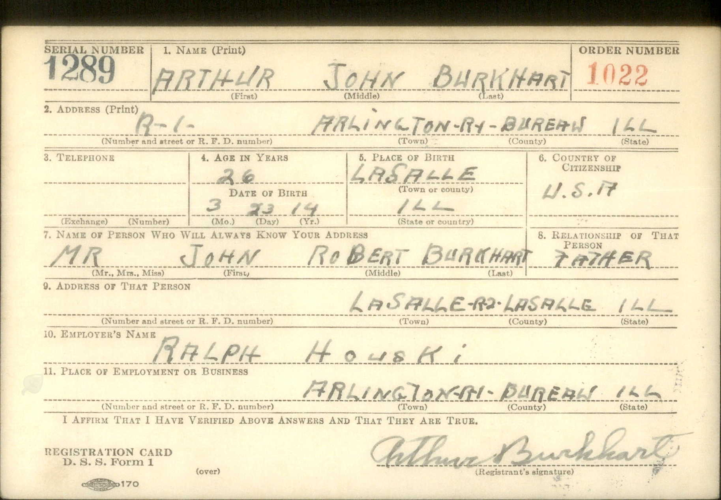 SERIAL NUMBER 1. NAME (Print) ORDER NUMBER
1289 ARTHUR JOHN BURKHART 1022
(First) (Middle) (Last)
2. ADDRESS (Print)
R-1- ARLINGTON-R1-BUREAU ILL
(Number and street or R. F. D. number) (Town) (County) (State)
3. TELEPHONE 4. AGE IN YEARS 5. PLACE OF BIRTH 6. COUNTRY OF CITIZENSHIP
26 LASALLE
DATE OF BIRTH (Town or county) U.S.A
3 23 14 ILL
(Exchange) (Number) (Mo.) (Day) (Yr.) (State or country)
7. NAME OF PERSON WHO WILL ALWAYS KNOW YOUR ADDRESS 8. RELATIONSHIP OF THAT PERSON
MR JOHN ROBERT BURKHART FATHER
(Mr., Mrs., Miss) (First) (Middle) (Last)
9. ADDRESS OF THAT PERSON
LASALLE-R2-LASALLE ILL
(Number and street or R. F. D. number) (Town) (County) (State)
10. EMPLOYER'S NAME
RALPH HOUSKi
11. PLACE OF EMPLOYMENT OR BUSINESS
ARLINGTON-R1-BUREAU ILL
(Number and street or R. F. D. number) (Town) (County) (State)
I AFFIRM THAT I HAVE VERIFIED ABOVE ANSWERS AND THAT THEY ARE TRUE.
REGISTRATION CARD Arthur Burkhart
D. S. S. Form 1 (over) (Registrant's signature)
170